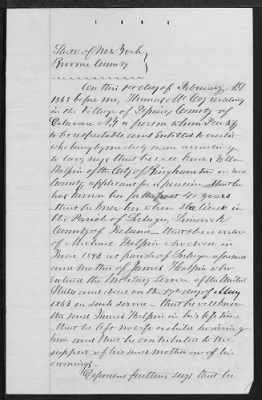 State of New York
Broome County
On this day of February AD
1868 before me, Thomas residing
in the Village of County of
Delaware N.Y. a person whom I certify
to be respectable and entitled to credit
who being by me duly sworn according
to law says that he well knows Ellen
Halpin of the City of Binghamton in said
County applicant for a pension that he
has known her for the past 30 years
that he knew her when she lived in
the Parish of Limerick
County of Ireland – that she is widow
of Michael Halpin who died in
June 1848 at parish of aforesaid
and mother of James Halpin who
entered the Military service of the United
States and died on the day of May
1863 in such service – that he well knew
the said James Halpin in his life time
– that he left no wife or child surviving
him and that he contributed to the
support of his said mother out of his
earnings
Deponent further says that he